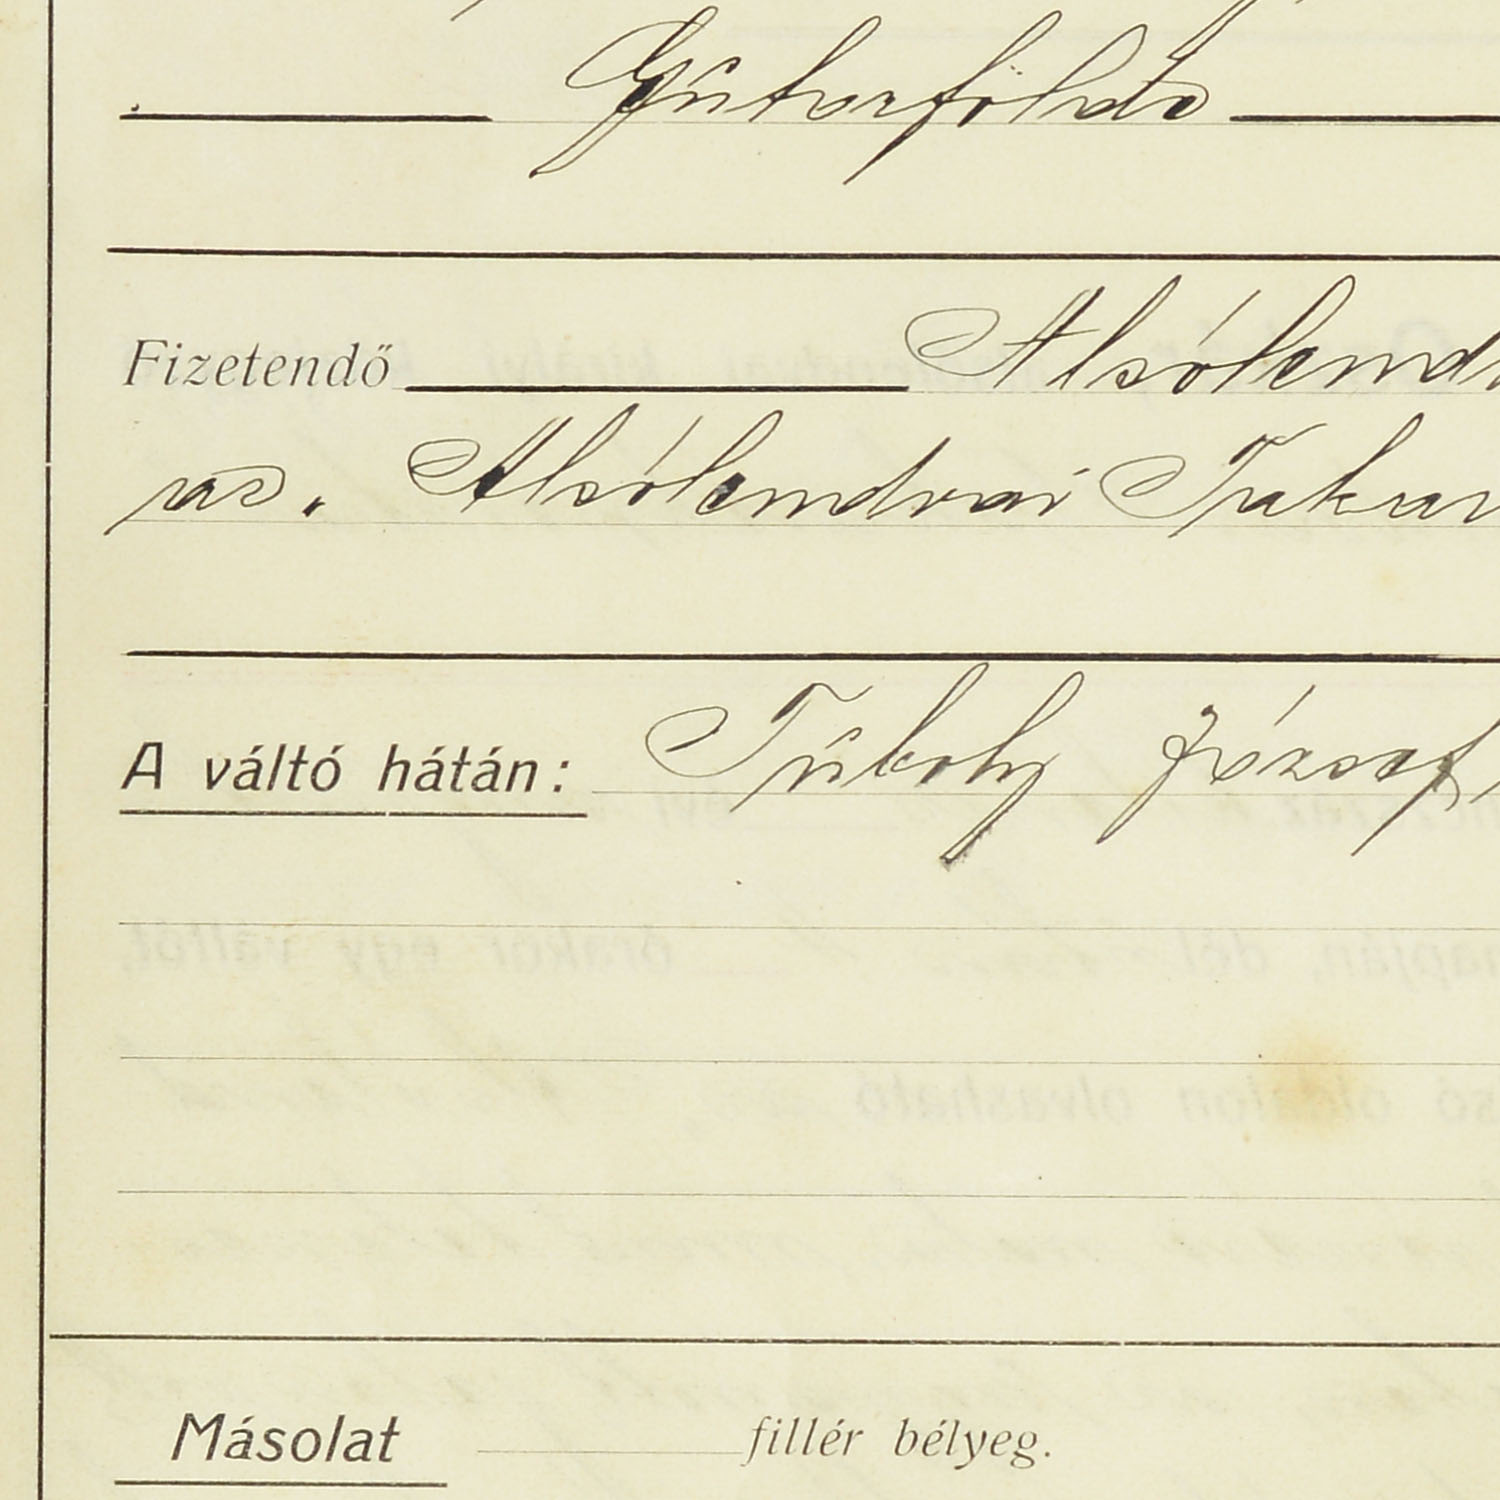 Gutorfölde
Fizetendő Alsólend
az. Alsólendvai Takar
A váltó hátán: Tüboly József
Másolat fillér bélyeg.